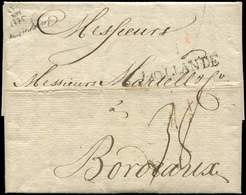 Messieurs
HOLLANDE
Messieurs Martell & Co
à
Bordeaux